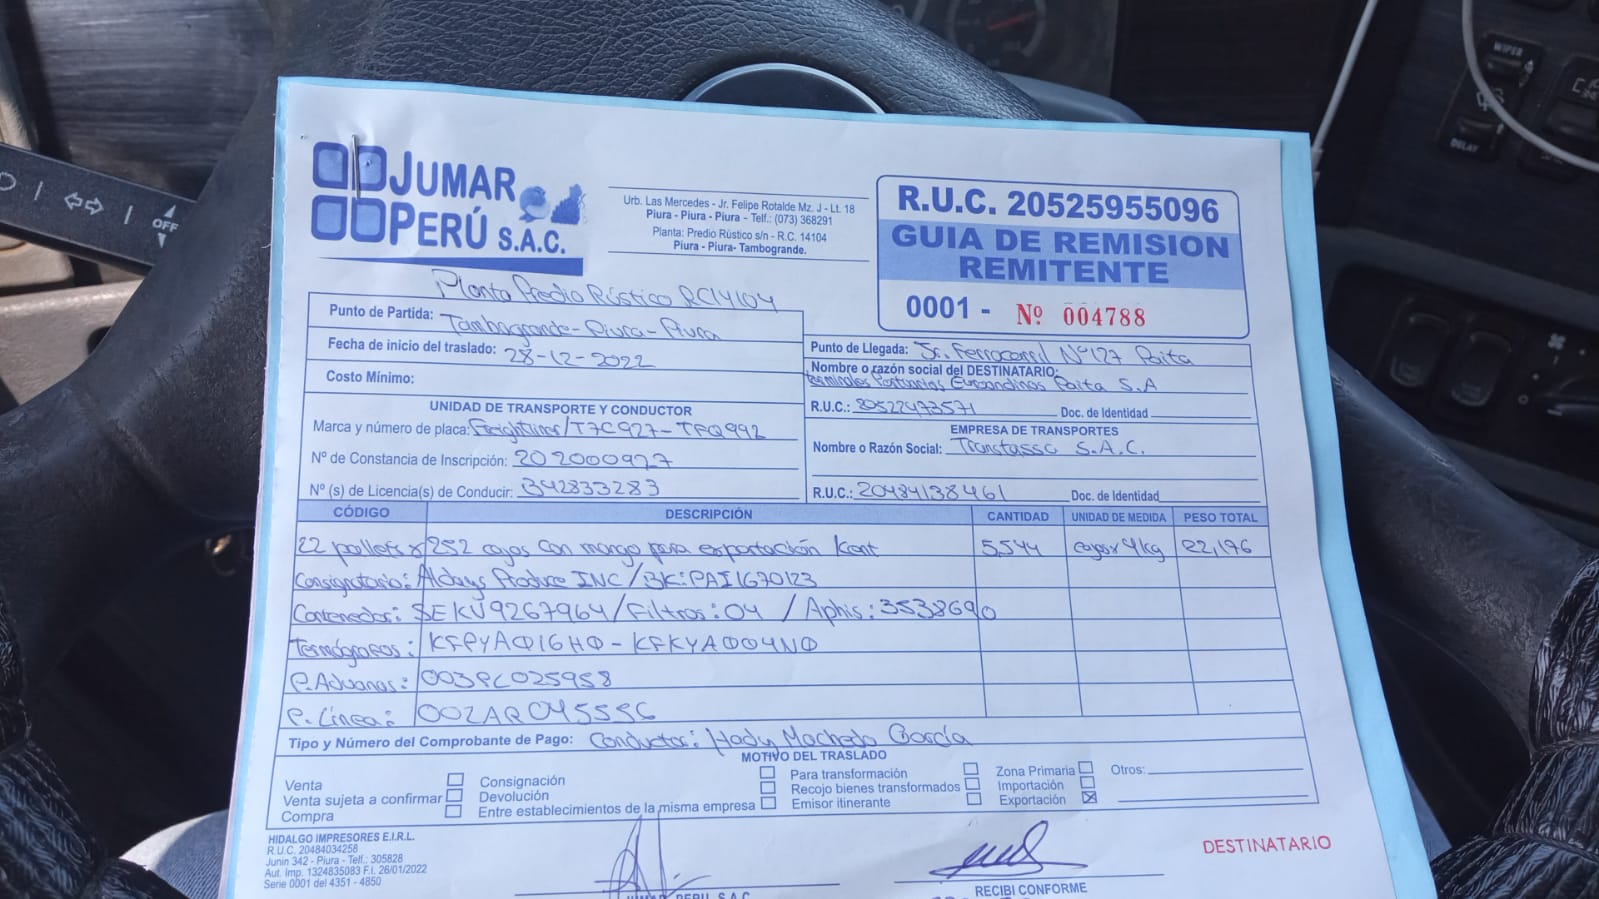 JUMAR
PERÚ S.A.C.
Urb. Las Mercedes - Jr. Felipe Rotalde Mz. J - Lt. 18
Piura - Piura - Piura - Telf.: (073) 368291
Planta: Predio Rústico s/n - R.C. 14104
Piura - Piura- Tambogrande.
R.U.C. 20525955096
GUIA DE REMISION
REMITENTE
0001 - Nº 004788
Planta Predio Rústico RC14104
Punto de Partida: Tambogrande-Piura-Piura
Fecha de inicio del traslado: 28-12-2022
Costo Mínimo:
Punto de Llegada: Jr. Ferrocarril Nº127 Paita
Nombre o razón social del DESTINATARIO:
Terminales Portuarios Euroandinos Paita S.A
R.U.C.: 20522473571 Doc. de Identidad
UNIDAD DE TRANSPORTE Y CONDUCTOR
Marca y número de placa: Freightliner/T7C927-TFQ992
Nº de Constancia de Inscripción: 202000927
Nº (s) de Licencia(s) de Conducir: B42833283
EMPRESA DE TRANSPORTES
Nombre o Razón Social: Transtassa S.A.C.
R.U.C.: 20484138461 Doc. de Identidad
CÓDIGO DESCRIPCIÓN CANTIDAD UNIDAD DE MEDIDA PESO TOTAL
22 pallets x 252 cajas con mango para exportación Kent 5,544 cajas x 4kg 22,176
Consignatario: Aldays Produce INC/BK:PAI1670123
Contenedor: SEKU9267964/Filtros:04 / Aphis:3538690
Termógrafos: KFPYA016H0-KFKYA004N0
P.Aduanas: 003PL025958
P. Línea: 00ZAR045556
Tipo y Número del Comprobante de Pago: Conductor: Hady Machado García
MOTIVO DEL TRASLADO
Venta
Venta sujeta a confirmar
Compra
Consignación
Devolución
Entre establecimientos de la misma empresa
Para transformación
Recojo bienes transformados
Emisor itinerante
Zona Primaria
Importación
Exportación X
Otros:
HIDALGO IMPRESORES E.I.R.L.
R.U.C. 20484034258
Junin 342 - Piura - Telf.: 305828
Aut. Imp. 1324835083 F.I. 26/01/2022
Serie 0001 del 4351 - 4850
JUMAR PERU S.A.C.
RECIBI CONFORME
DESTINATARIO
OFF
WIPER
DELAY